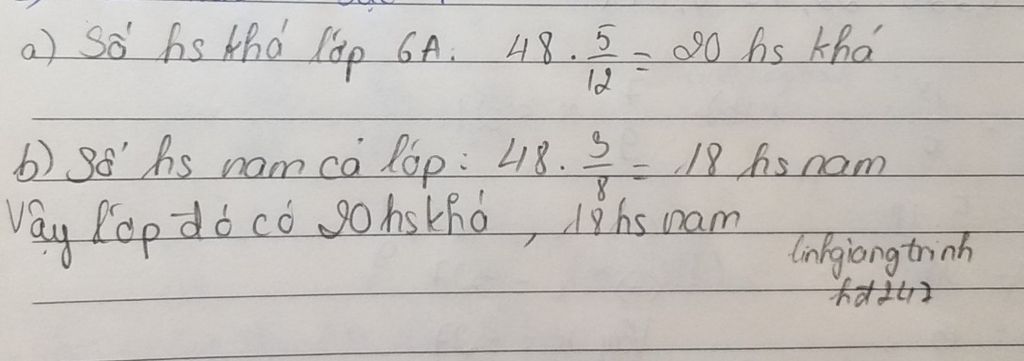 a) Số hs khá lớp 6A: 48 . 5/12 = 20 hs khá
b) Số hs nam cả lớp: 48 . 3/8 = 18 hs nam
Vậy lớp đó có 20 hs khá, 18 hs nam
linhgiangtrinh